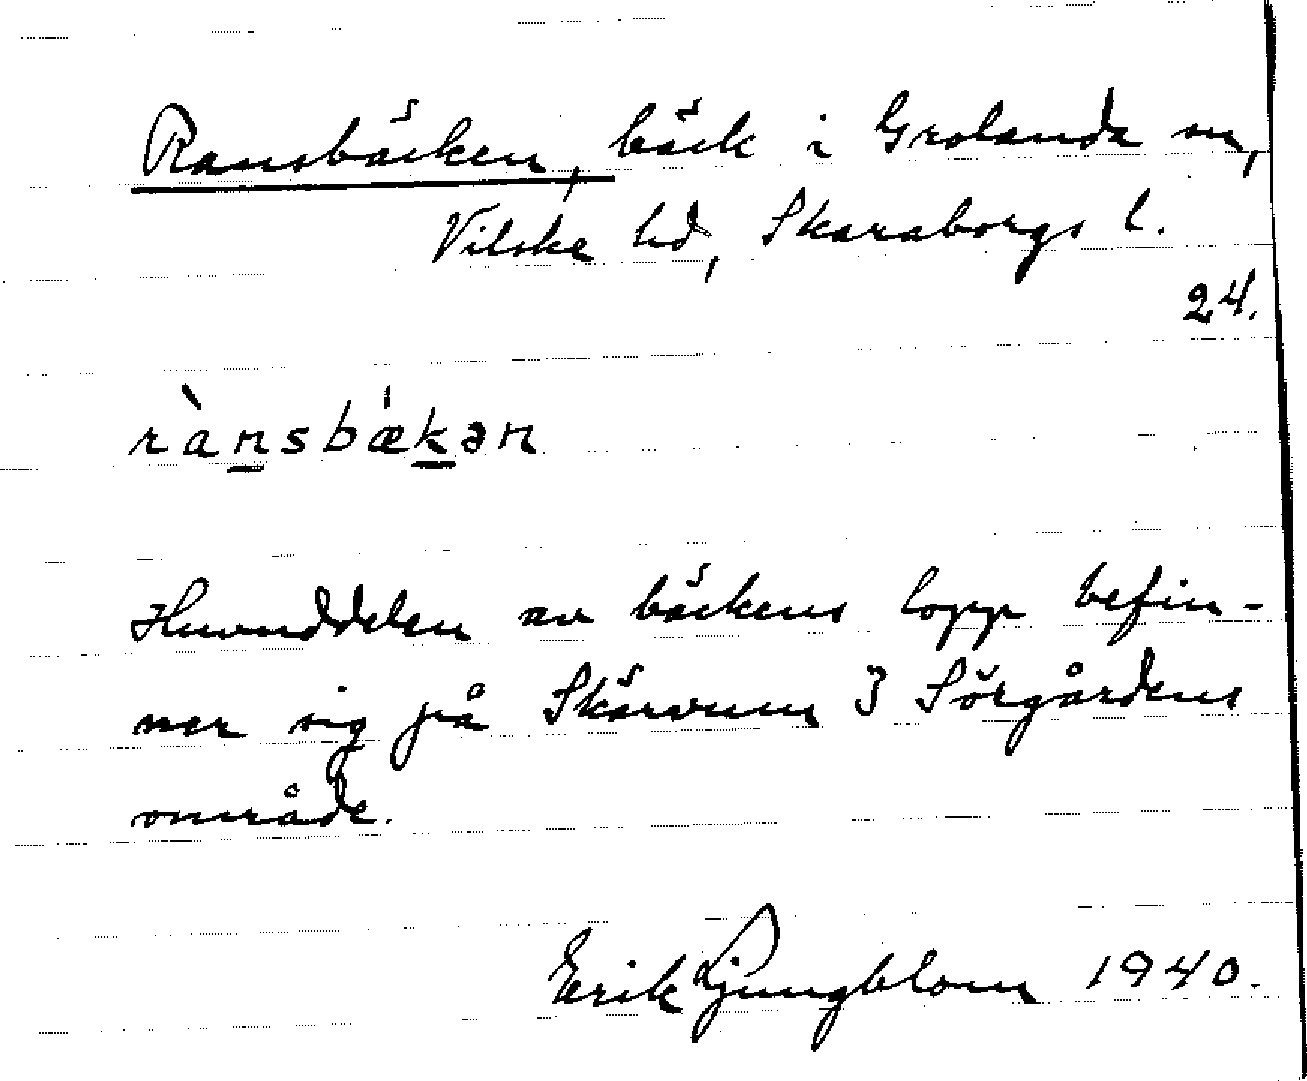 Ransbäcken, bäck i Grolanda sn,
Vilske hd, Skaraborgs l.
24.
rànsbǽkən
Huvuddelen av bäckens lopp befin-
ner sig på Skärvum 3 Sörgårdens
område.
Erik Ljungblom 1940.